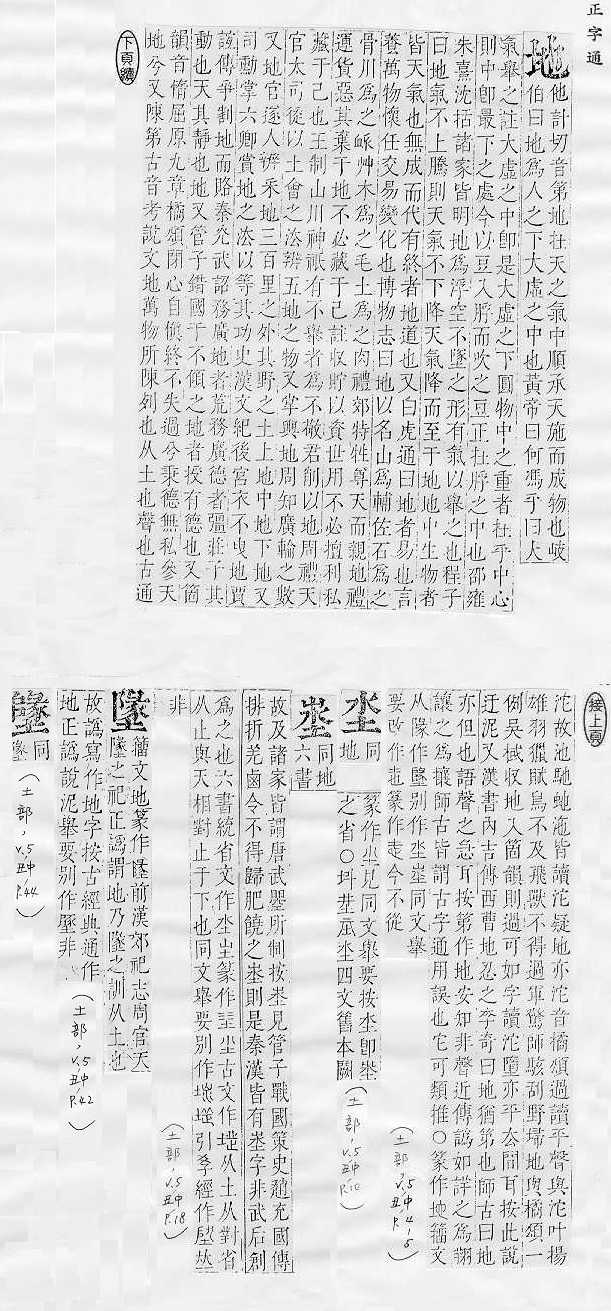 正字通
地 他計切音第地在天之氣中順承天施而成物也岐
伯曰地爲人之下大虛之中也黃帝曰何馮乎曰大
氣舉之註大虛之中卽是大虛之下圓物中之重者在乎中心
則中卽最下之處今以豆入脬而吹之豆正在脬之中也邵雍
朱熹沈括諸家皆明地爲浮空不墜之形有氣以舉之也程子
曰地氣不上騰則天氣不下降天氣降而至于地地中生物者
皆天氣也無成而代有終者地道也又白虎通曰地者易也言
養萬物懷任交易變化也博物志曰地以名山爲輔佐石爲之
骨川爲之脈艸木爲之毛土爲之肉禮郊特牲尊天而親地禮
運貨惡其棄于地不必藏于己註收貯以資世用不必擅利私
藏于己也王制山川神祇有不舉者爲不敬君削以地周禮天
官大司徒以土會之法辨五地之物又掌輿地周知廣輪之數
又地官遂人辨釆地三百里之外其野之土上地中地下地又
司勳掌六卿賞地之法以等其功史漢文紀後宮衣不曳地賈
誼傳爭割地而賂秦光武詔務廣地者荒務廣德者彊莊子其
動也天其靜也地又管子錯國于不傾之地者授有德也又箇
韻音惰屈原九章橘頌閉心自愼終不失過兮秉德無私參天
地兮又陳第古音考說文地萬物所陳列也从土也聲也古通
下頁續
接上頁
沱故池馳虵迤皆讀沱疑地亦沱音橘頌過讀平聲與沱叶揚
雄羽獵賦鳥不及飛獸不得過軍驚師駭刮野埽地與橘頌一
例吳棫收地入箇韻則過可如字讀沱墮亦平去閒耳按此說
迂泥又漢書丙吉傳西曹地忍之李奇曰地猶第也師古曰地
亦但也語聲之急耳按第作地安知非聲近傳譌如詳之爲翔
讓之爲攘師古皆謂古字通用誤也它可類推○篆作地籒文
从隊作墬別作埊坔峚同文舉
要改作𡉏篆作𡉏今不從
(土部,v.5 丑中 p.4-5)
坔 同地
篆作坔見同文舉要按坔卽埊
之省○坢坓坙坔四文舊本闕
(土部,v.5 丑中 p.10)
埊 同地六書
故及諸家皆謂唐武曌所制按埊見管子戰國策史趙充國傳
排折羌鹵令不得歸肥饒之埊則是秦漢皆有埊字非武后創
爲之也六書統省文作坔峚篆作坓坐古文作墬从土从對省
从止與天相對止于下也同文舉要別作墬引孝經作坖埊
非
(土部,v.5 丑中 p.18)
墬 籒文地篆作墬前漢郊祀志周官天
墬之祀正譌謂地乃墬之訓从土也
故譌寫作地字按古經典通作
地正譌說泥舉要別作墬非
(土部,v.5 丑中 p.42)
同墬
(土部,v.5 丑中 p.44)